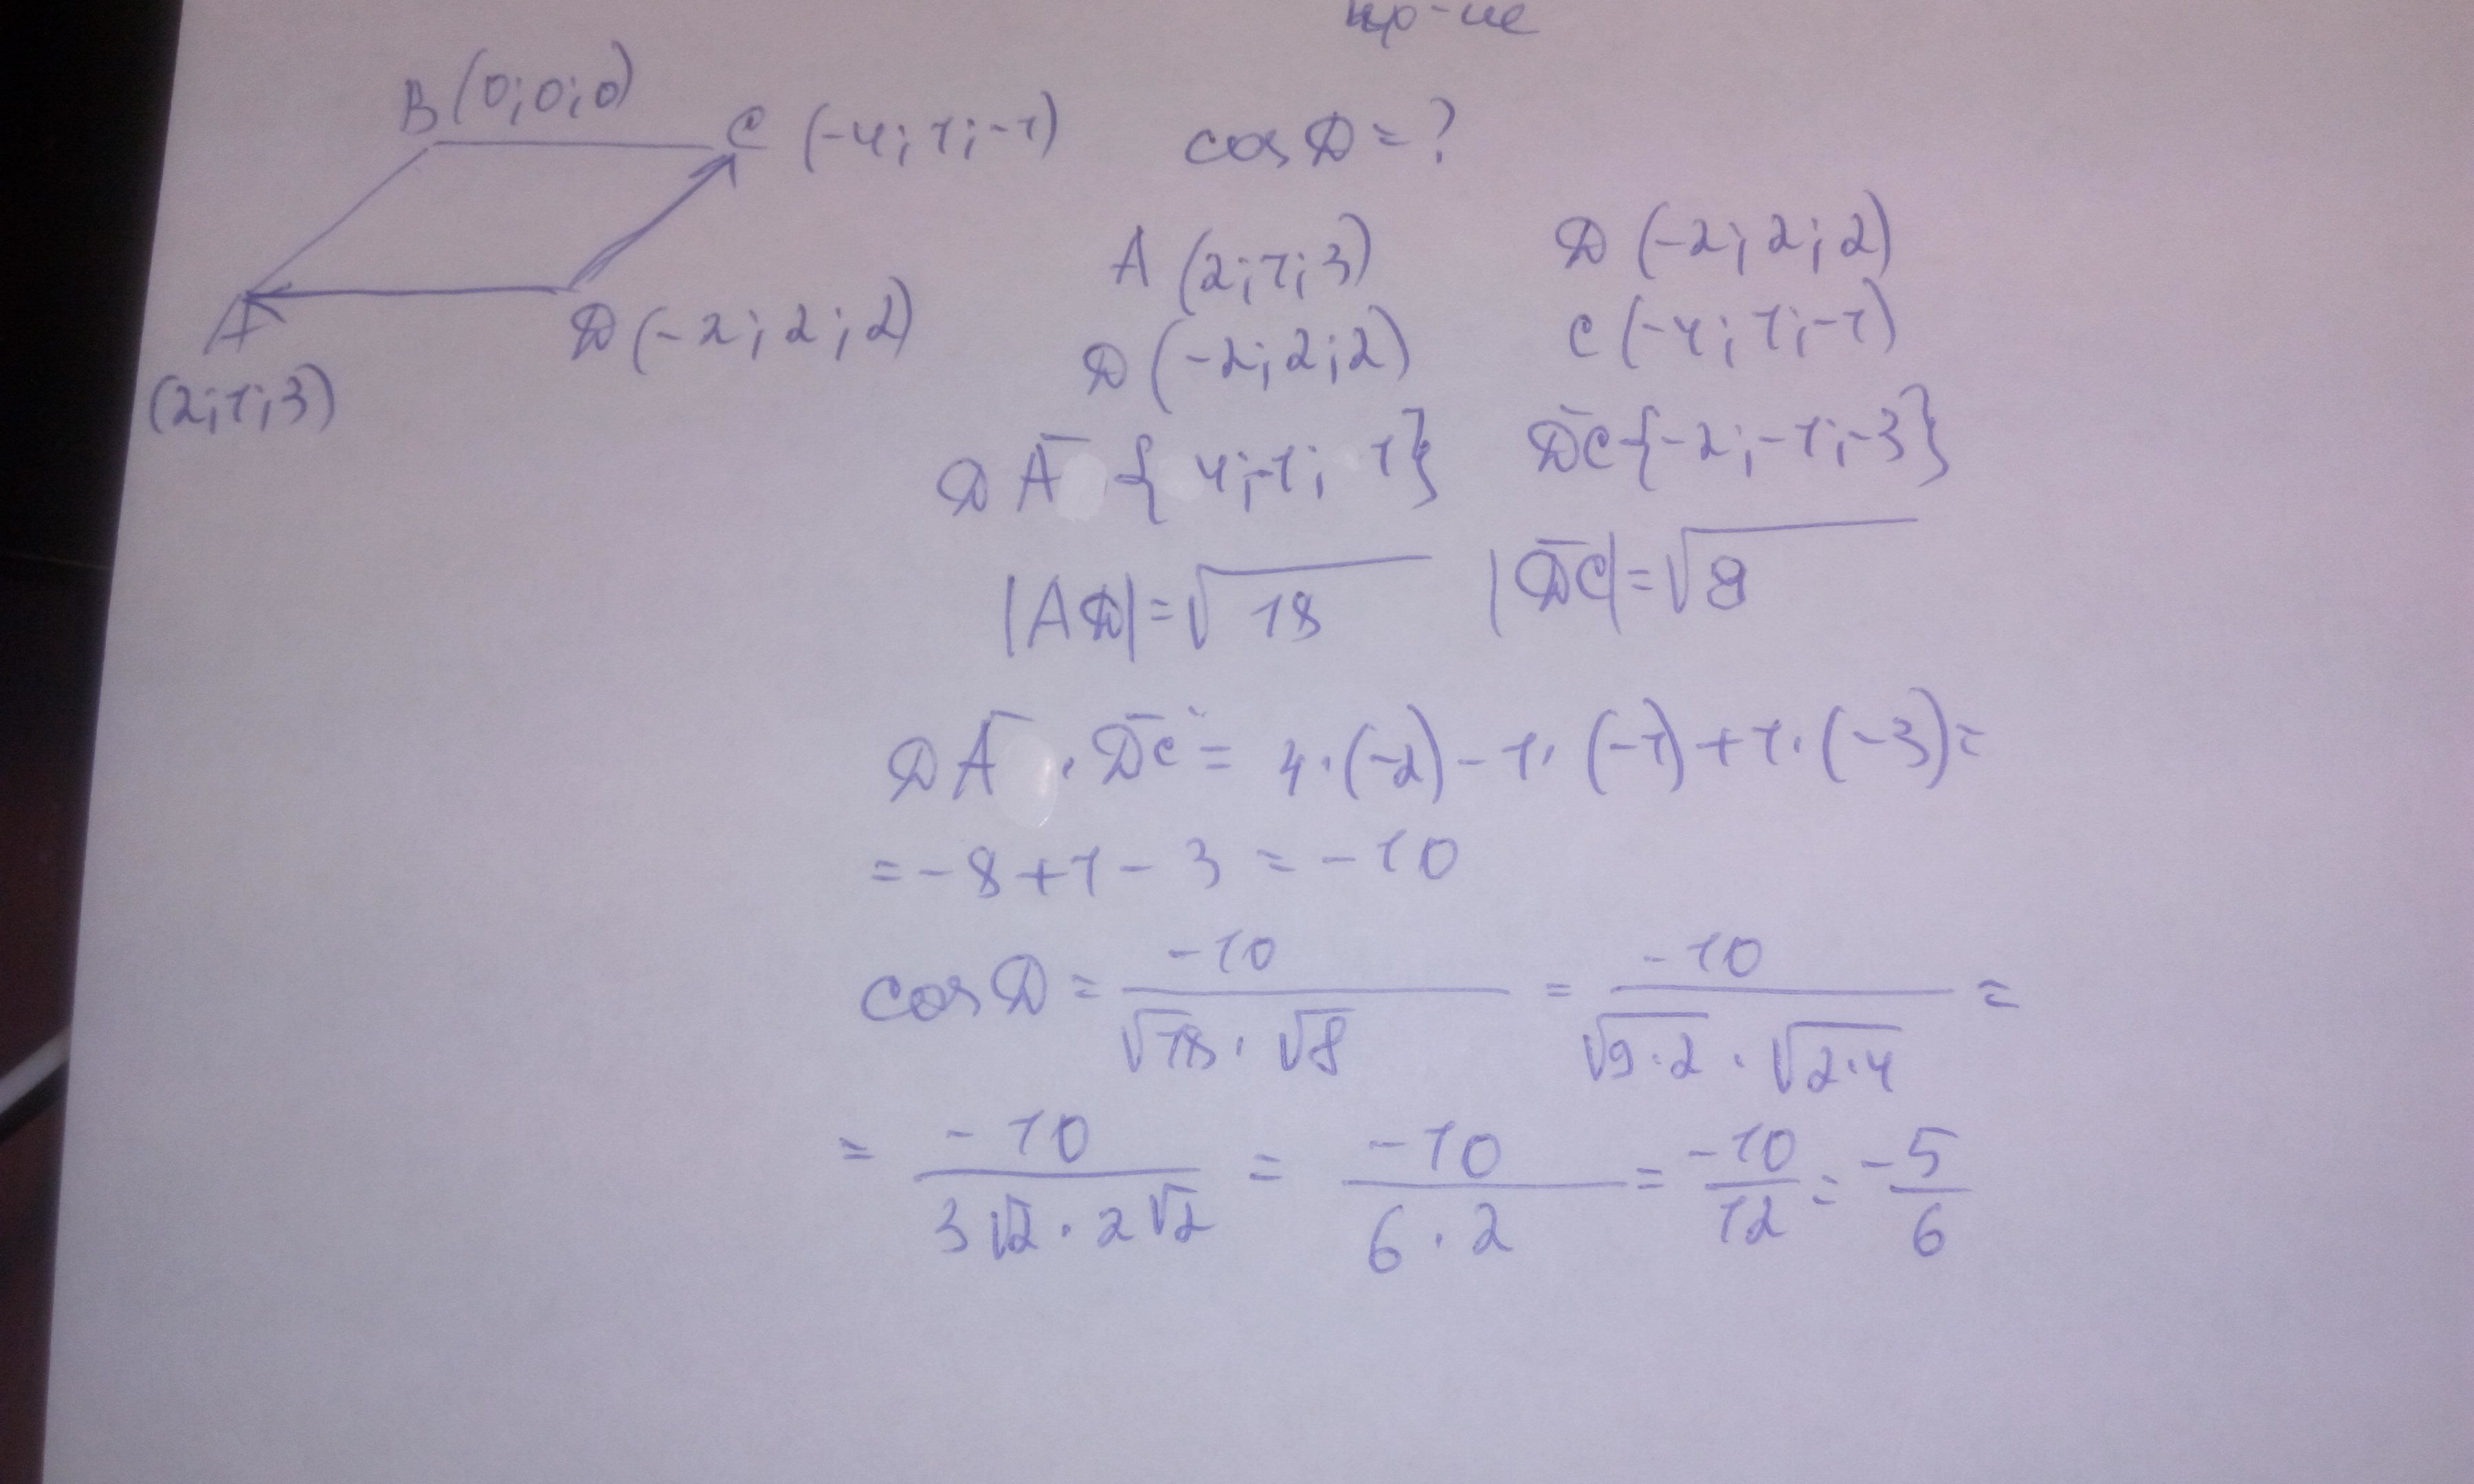 ур-не
B (0; 0; 0)
C (-4; 1; -1)
cos D = ?
A
(2; 1; 3)
D (-2; 2; 2)
A (2; 1; 3)
D (-2; 2; 2)
D (-2; 2; 2)
C (-4; 1; -1)
DA {4; -1; 1}
DC {-2; -1; -3}
|AD| = √18
|DC| = √8
DA · DC = 4 · (-2) - 1 · (-1) + 1 · (-3) =
= -8 + 1 - 3 = -10
cos D = -10 / √18 · √8 = -10 / √9·2 · √2·4 =
= -10 / 3√2 · 2√2 = -10 / 6 · 2 = -10 / 12 = -5 / 6